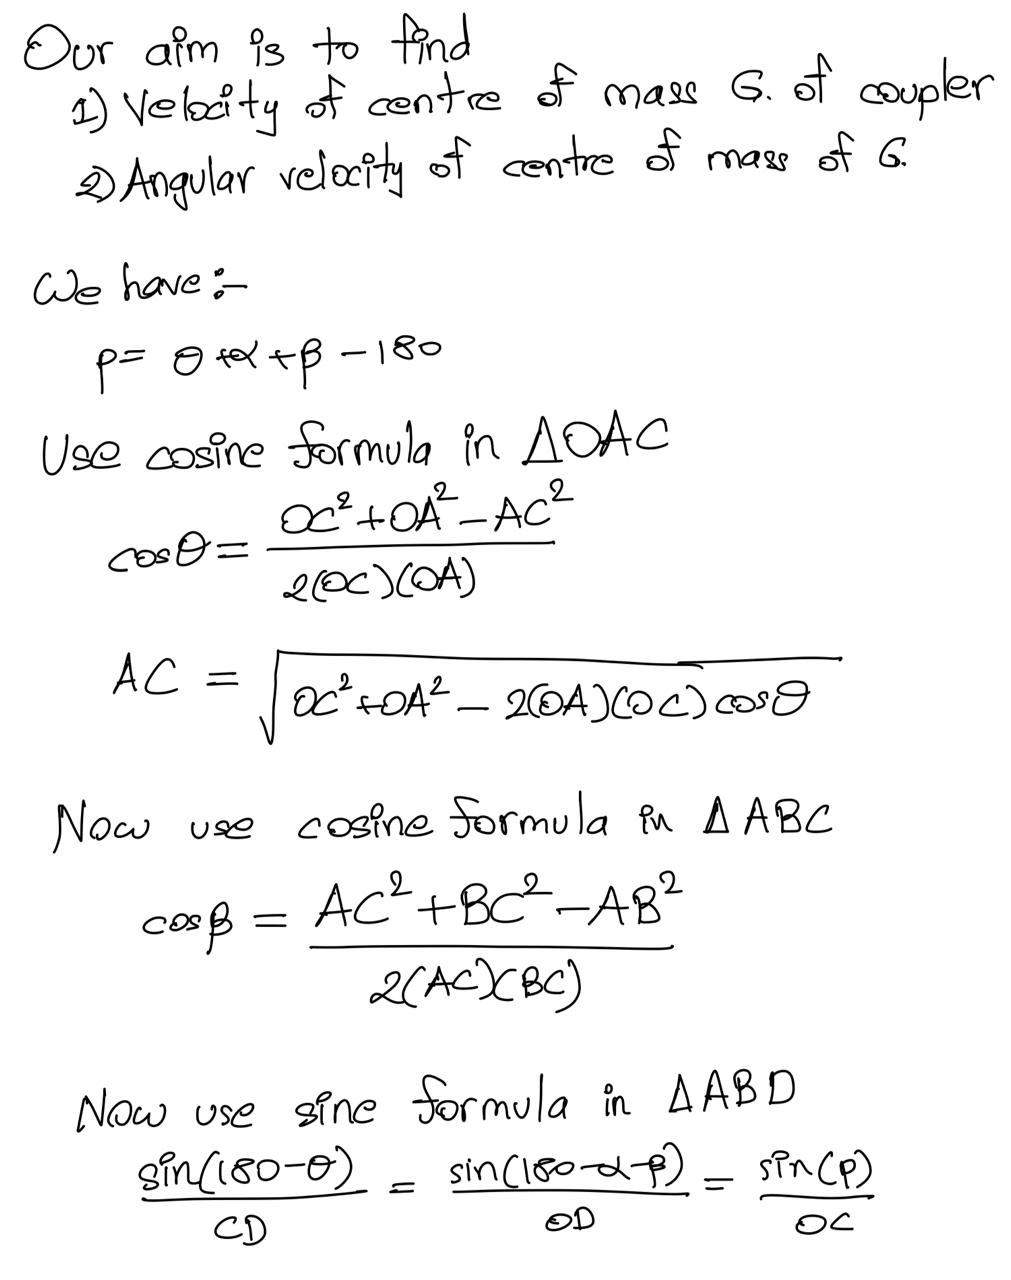 Our aim is to find
1) Velocity of centre of mass G. of coupler
2) Angular velocity of centre of mass of G.
We have :-
p = θ + α + β - 180
Use cosine formula in ΔOAC
cosθ = (OC² + OA² - AC²) / (2(OC)(OA))
AC = √(OC² + OA² - 2(OA)(OC) cosθ)
Now use cosine formula in ΔABC
cosβ = (AC² + BC² - AB²) / (2(AC)(BC))
Now use sine formula in ΔABD
sin(180-θ) / CD = sin(180-α-β) / OD = sin(p) / OC